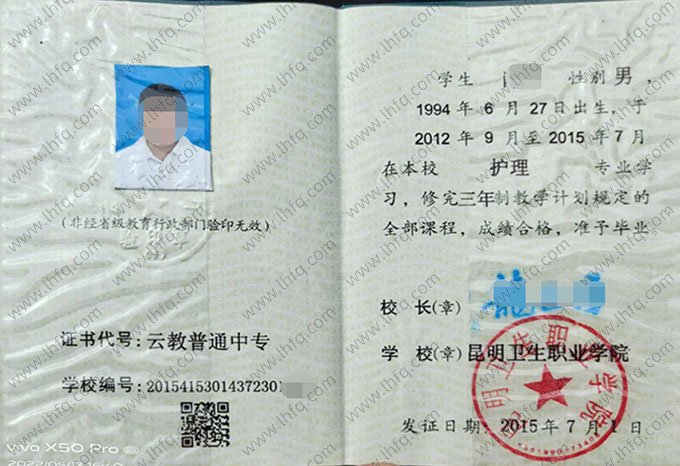 (非经省级教育行政部门验印无效)
证书代号: 云教普通中专
学校编号: 2015415301437230
vivo X50 Pro
学生 性别 男,
1994 年 6 月 27 日出生, 于
2012 年 9 月至 2015 年 7 月
在本校 护理 专业学
习, 修完三年制教学计划规定的
全部课程, 成绩合格, 准予毕业
校 长(章)
学 校(章) 昆明卫生职业学院
昆明卫生职业学院
发证日期: 2015 年 7 月 1 日
www.lhfq.com